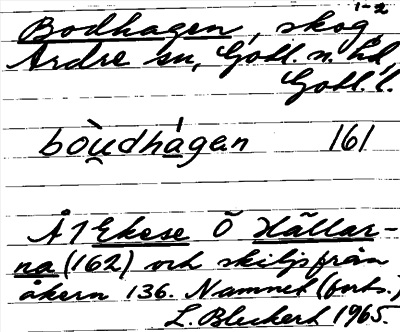 1-2
Bodhagen, skog,
Ardre sn, Gotl. n. hd,
Gotl. l.
bòu̯dhágen 161
Å 1 Ekese Ö Hällar-
na (162) och skiljs från
åkern 136. Namnet (forts.)
L. Bleckert 1965.